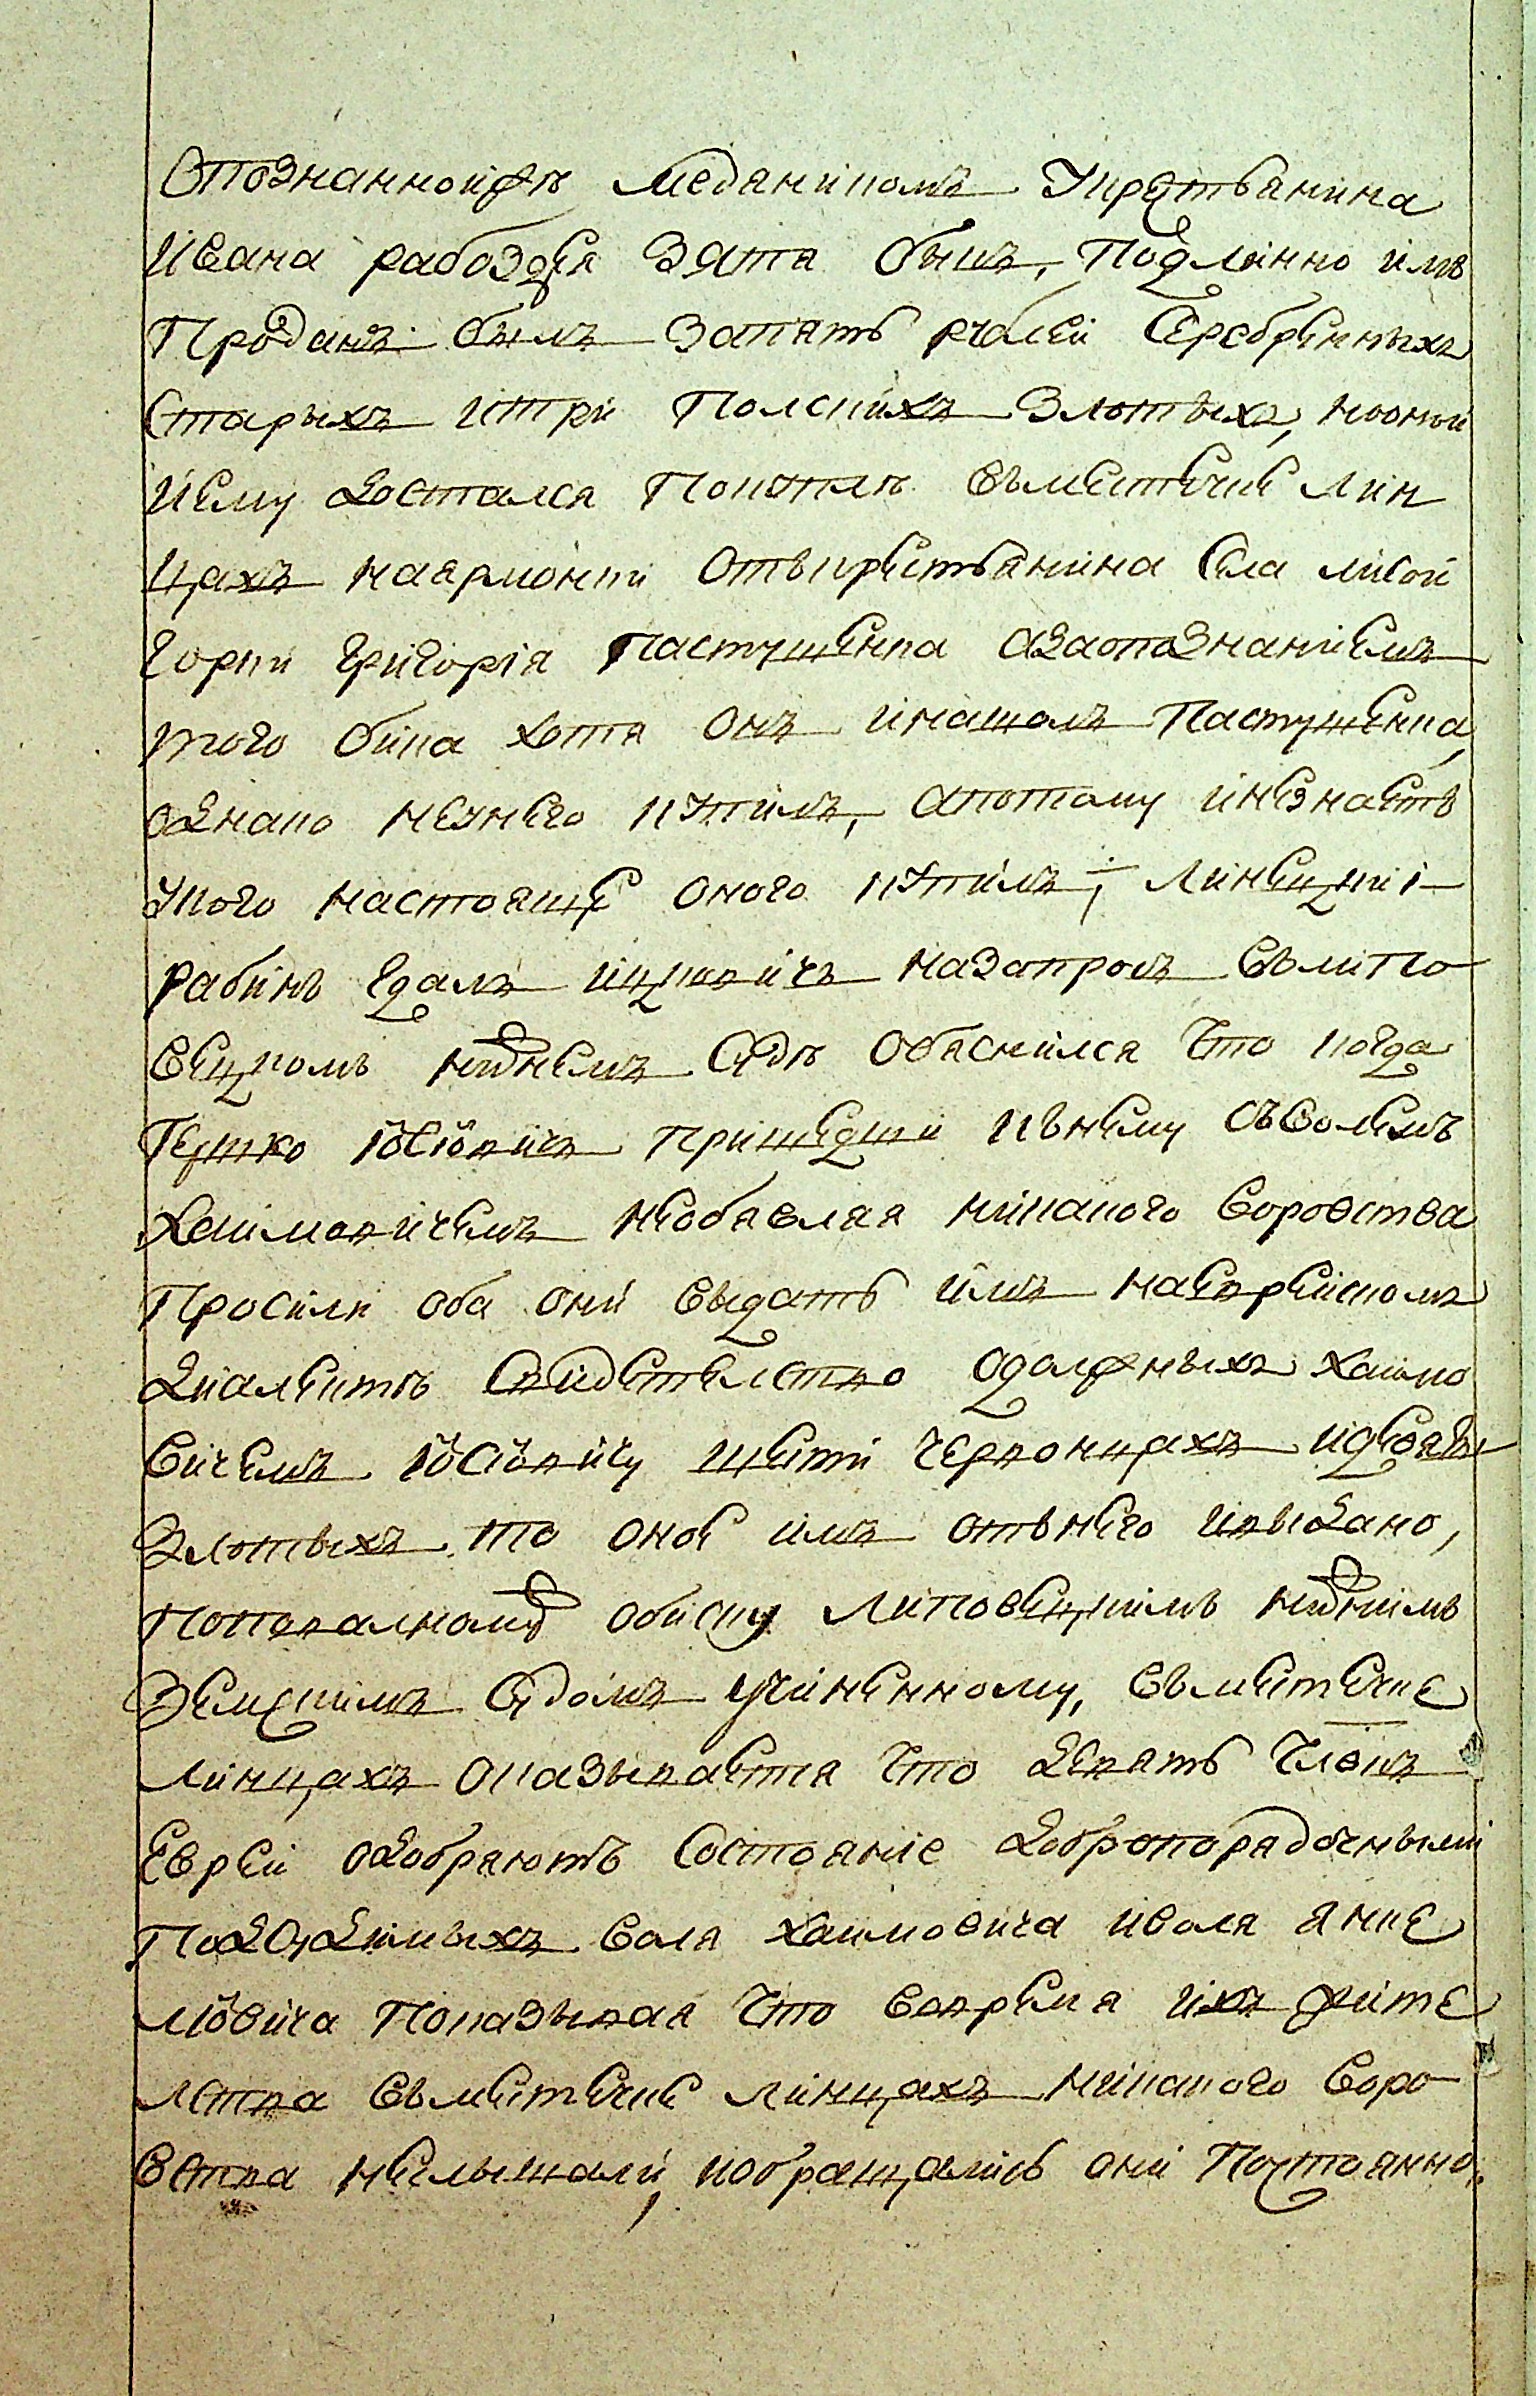 Опознанной же Медяником у кретьянина
Ивана рабоздея Зятя быкъ, Подлинно имъ
Проданъ былъ Запять рублей Серебренныхъ
Старыхъ итри Полскихъ Злотыхъ, которий
Йему Достался Покупле въместечке Лин
цахъ наярмонки отъкрестьянина Села лисой
Горки Григория Пастушенка азаопознаниемъ
того бика хотя онъ инашолъ Пастушенка,
однако неунего купилъ, апотому инезнаетъ
укого настояще оного купилъ; Линецкий
рабинъ Гдаль ицковичъ назапросъ вълипо
вецкомъ нижнемъ Суде обяснился Что когда
Гершко Иосиовичъ пришедши кънему съволемъ
Хаимовичемъ необявляя никакого воровства
Просили оба они выдать имъ наеврейскомъ
Диалекте Свидетелство одолжныхъ хаимо
вичемъ Иосиовичу шести червонцахъ идевять
Злотыхъ то оное имъ отънего ивыдано,
Поповалному обиску Липовецкимъ нижнимъ
Земскимъ Судомъ учиненному, въместечке
Линцахъ оказывается Что девять Човекъ
Еврей одобряютъ Состояние добропорядочными
Подсудимыхъ Воля хаимовича иволя янке
лиовича Показывая Что вовремя ихъ жите
лства въместечке линцахъ никакого воро
вства неслышали, иобращались они Постоянно,